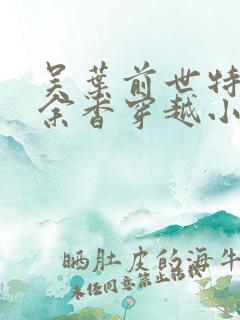 吴叶前世特
余香穿越小
晒肚皮的海牛
未经同意禁止转载